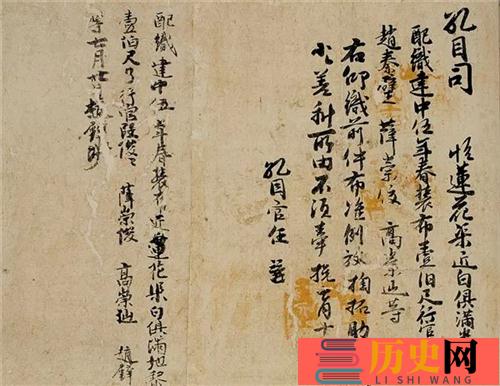 孔目司 帖蓮花渠匠白俱滿尖
配織建中伍年春裝布壹伯尺行官
趙秦璧 薛崇俊 高崇仙等
右仰織前件布准例放掏拓助
小小差科所由不須牽挽七月十
孔目官任善
配織建中伍年春裝布匠蓮花渠白俱滿地黎
壹伯尺了行官段俊俊 薛崇俊 高崇仙 趙
等七月廿日趙 抄
历史网
LI SHI WANG